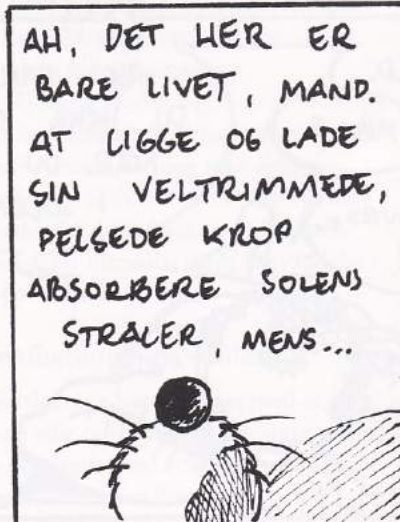 AH, DET HER ER
BARE LIVET, MAND.
AT LIGGE OG LADE
SIN VELTRIMMEDE,
PELSEDE KROP
ABSORBERE SOLENS
STRÅLER, MENS...